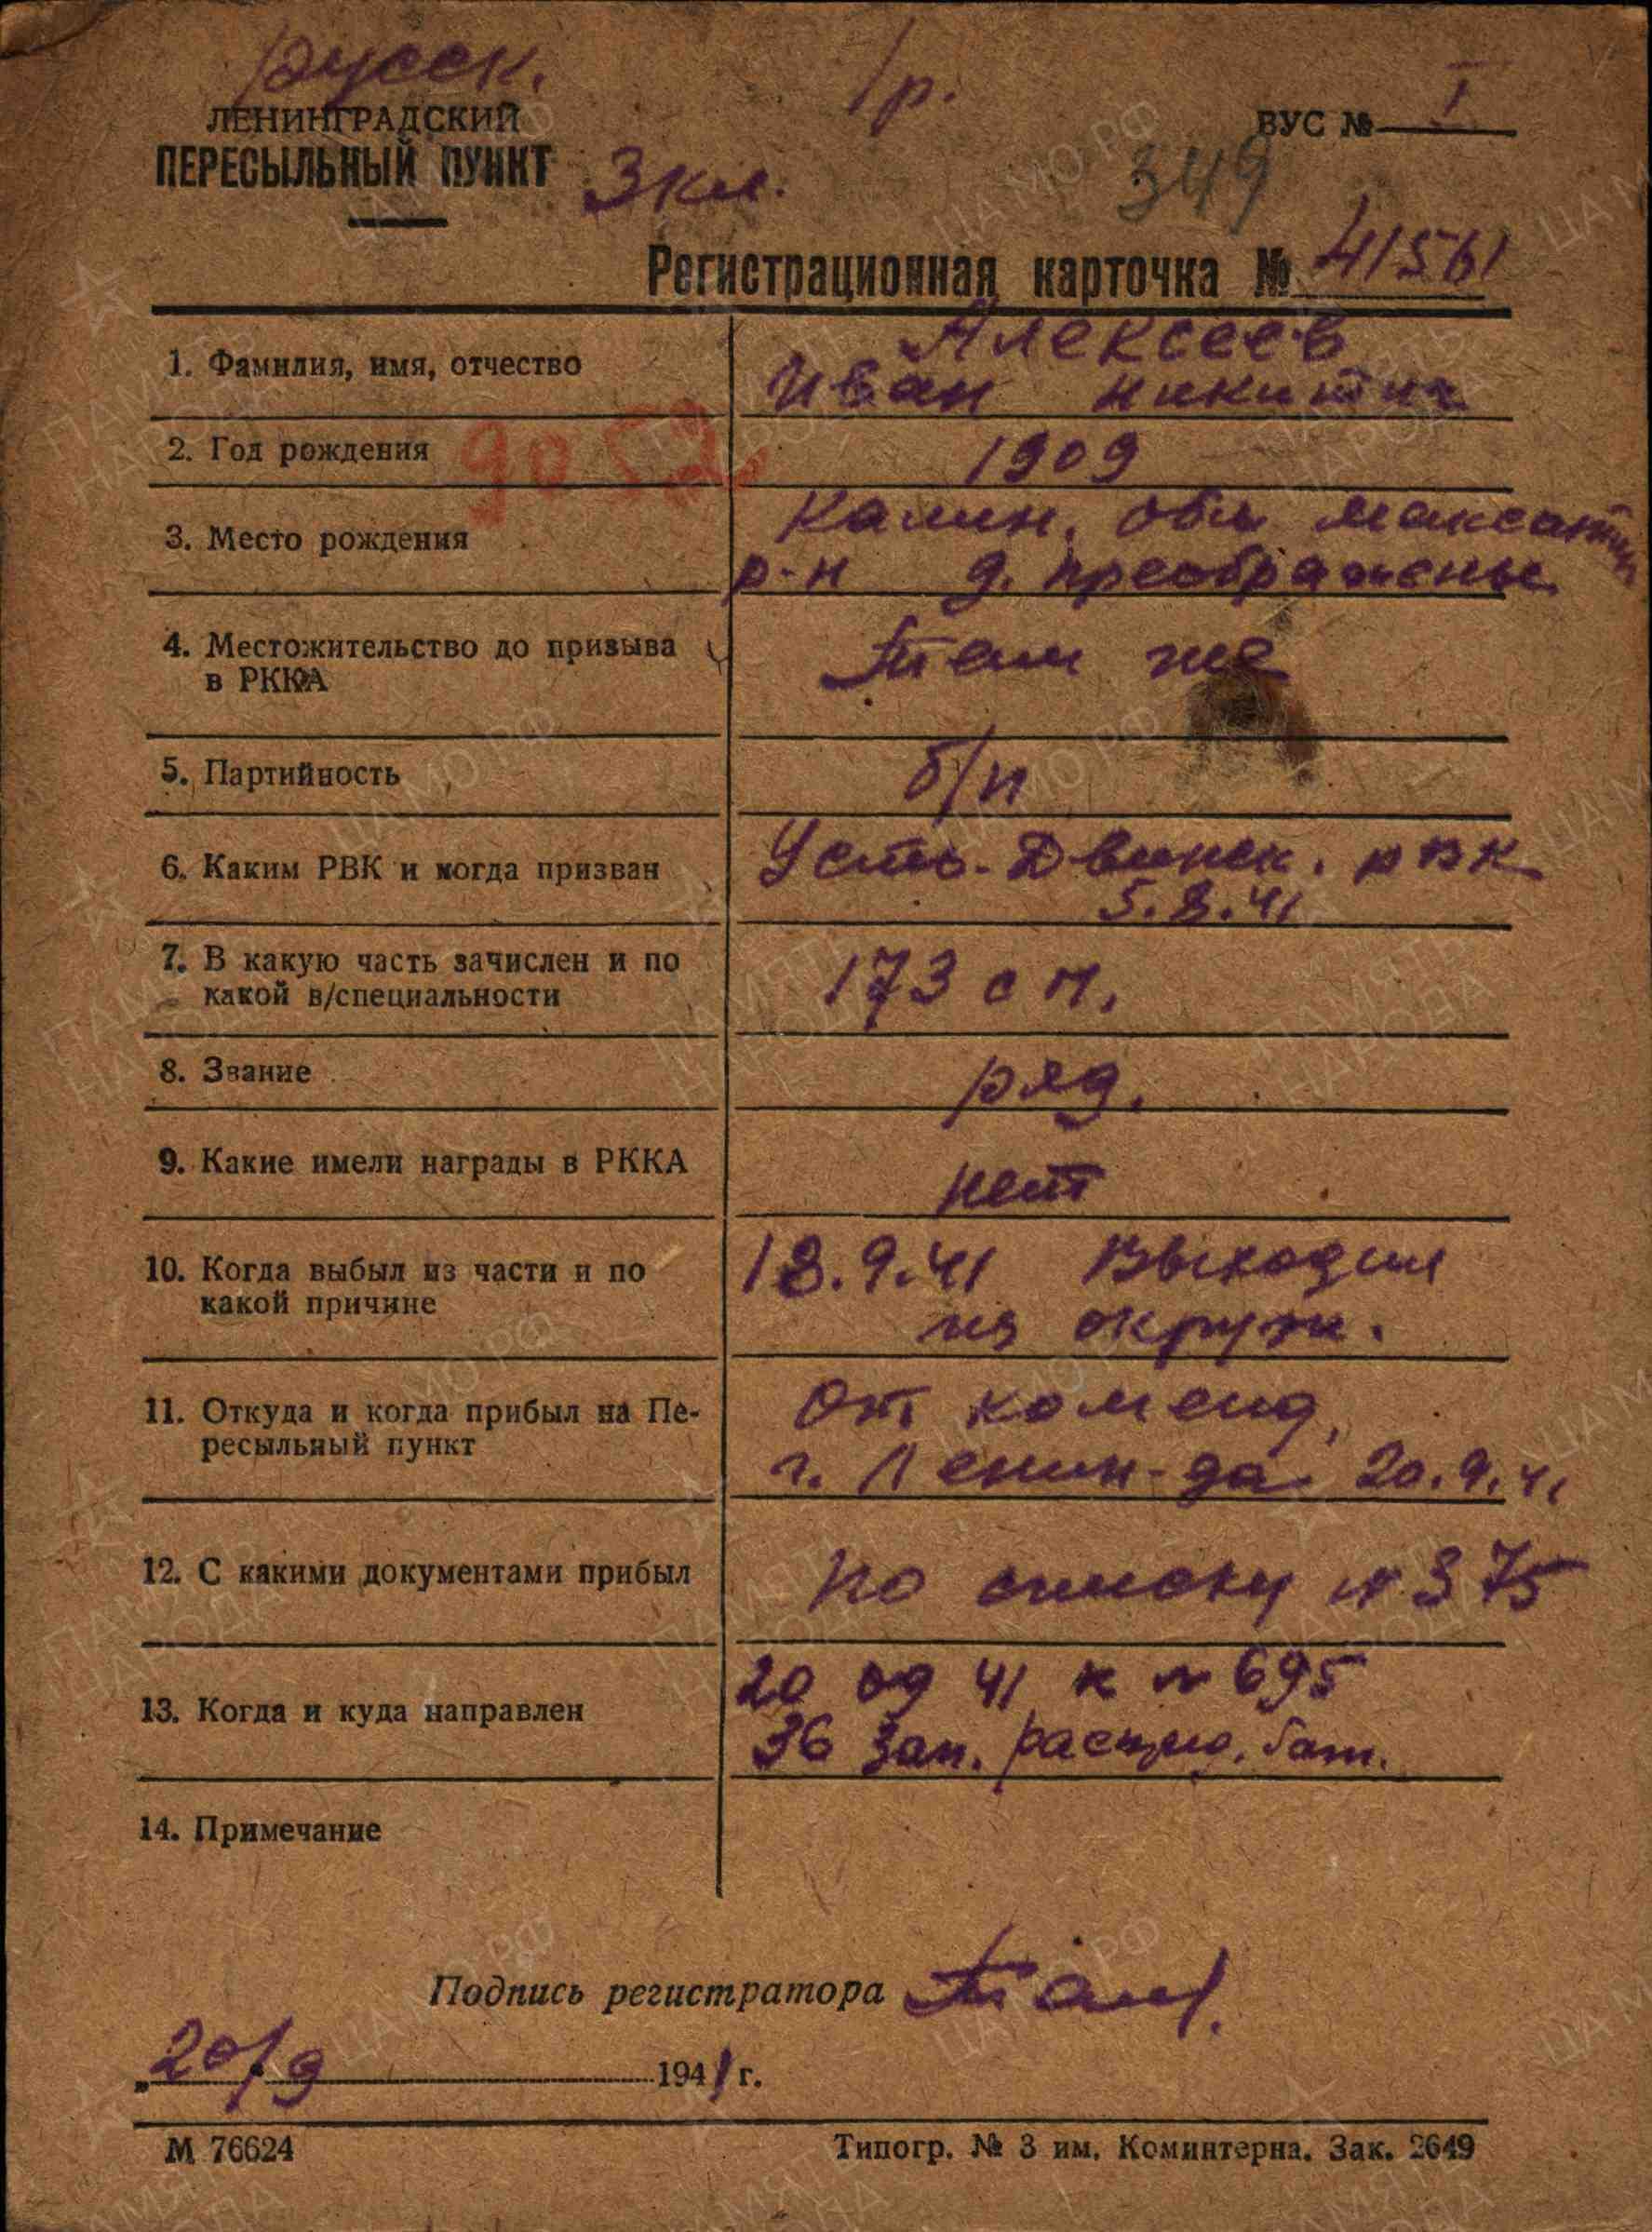 русск.
1р.
ЛЕНИНГРАДСКИЙ
ВУС № I
ПЕРЕСЫЛЬНЫЙ ПУНКТ
3 кл.
349
Регистрационная карточка № 41561
1. Фамилия, имя, отчество
Алексеев
Иван Никитич
2. Год рождения
1909
3. Место рождения
Калин. обл.
р-н д. Преображенье
4. Местожительство до призыва
в РККА
Там же
5. Партийность
б/п
6. Каким РВК и когда призван
Усть-Двинск. РВК
5.8.41
7. В какую часть зачислен и по
какой в/специальности
173 сп.
8. Звание
ряд.
9. Какие имели награды в РККА
нет
10. Когда выбыл из части и по
какой причине
18.9.41 Выходил
из окруж.
11. Откуда и когда прибыл на Пе-
ресыльный пункт
От коменд.
г. Ленин-да 20.9.41
12. С какими документами прибыл
по списку № 375
13. Когда и куда направлен
20 09 41 к № 695
36 зап. бат.
14. Примечание
Подпись регистратора
„20/9 1941 г.
М 76624
Типогр. № 3 им. Коминтерна. Зак. 2649
ПАМЯТЬ
НАРОДА
ЦАМО РФ